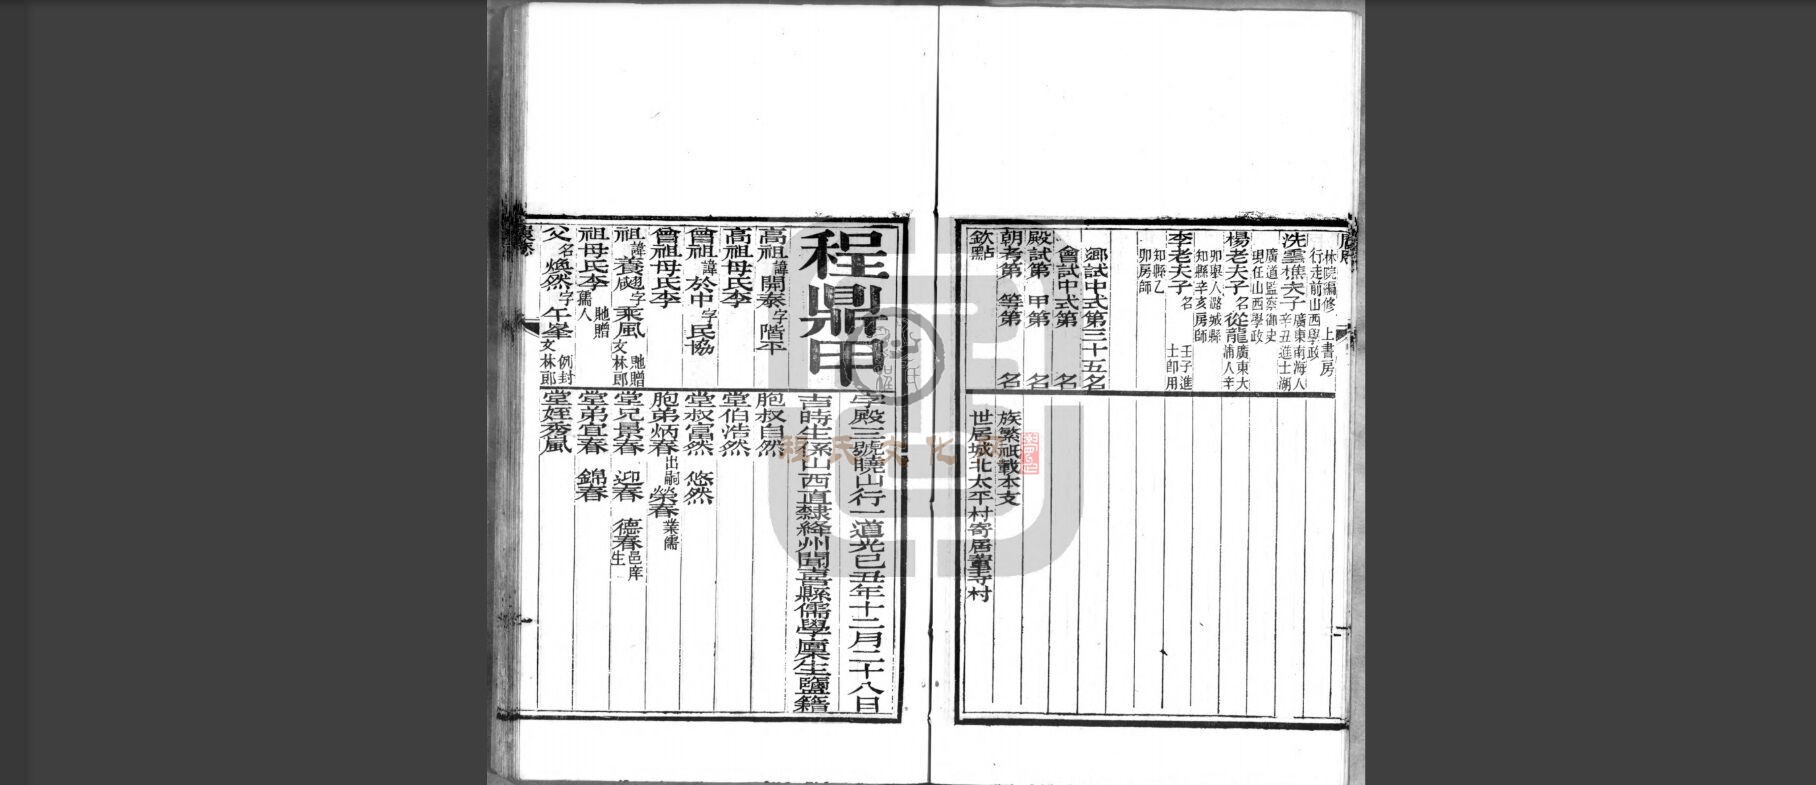 林院編修 上書房
行走前山西學政
冼雲樵夫子 廣東南海人
辛丑進士湖
廣道監察御史
現任山西學政
楊老夫子 名從龍廣東大
埔人辛
卯舉人潞城縣
知縣辛亥房師
李老夫子 名 壬子進
士卽用
知縣乙
卯房師
鄉試中式第三十五名
會試中式第 名
殿試第 甲第 名
朝考第 等第 名
欽點
族繁祇載本支
世居城北太平村寄居董寺村
程鼎甲
字殿三號曉山行一道光己丑年十二月二十八日
吉時生係山西直隸絳州聞喜縣儒學廩生鹽籍
高祖 諱開泰 字階平
高祖母氏李
曾祖 諱於中 字民協
曾祖母氏李
祖 諱養 字乘風 貤贈
文林郎
祖母氏李 貤贈
孺人
父 名煥然 字午峯 例封
文林郎
胞叔自然
堂伯浩然
堂叔富然 悠然
胞弟炳春 出嗣 榮春 業儒
堂兄景春 迎春 德春 邑庠
生
堂弟宜春 錦春
堂姪秀嵐
移氏文化